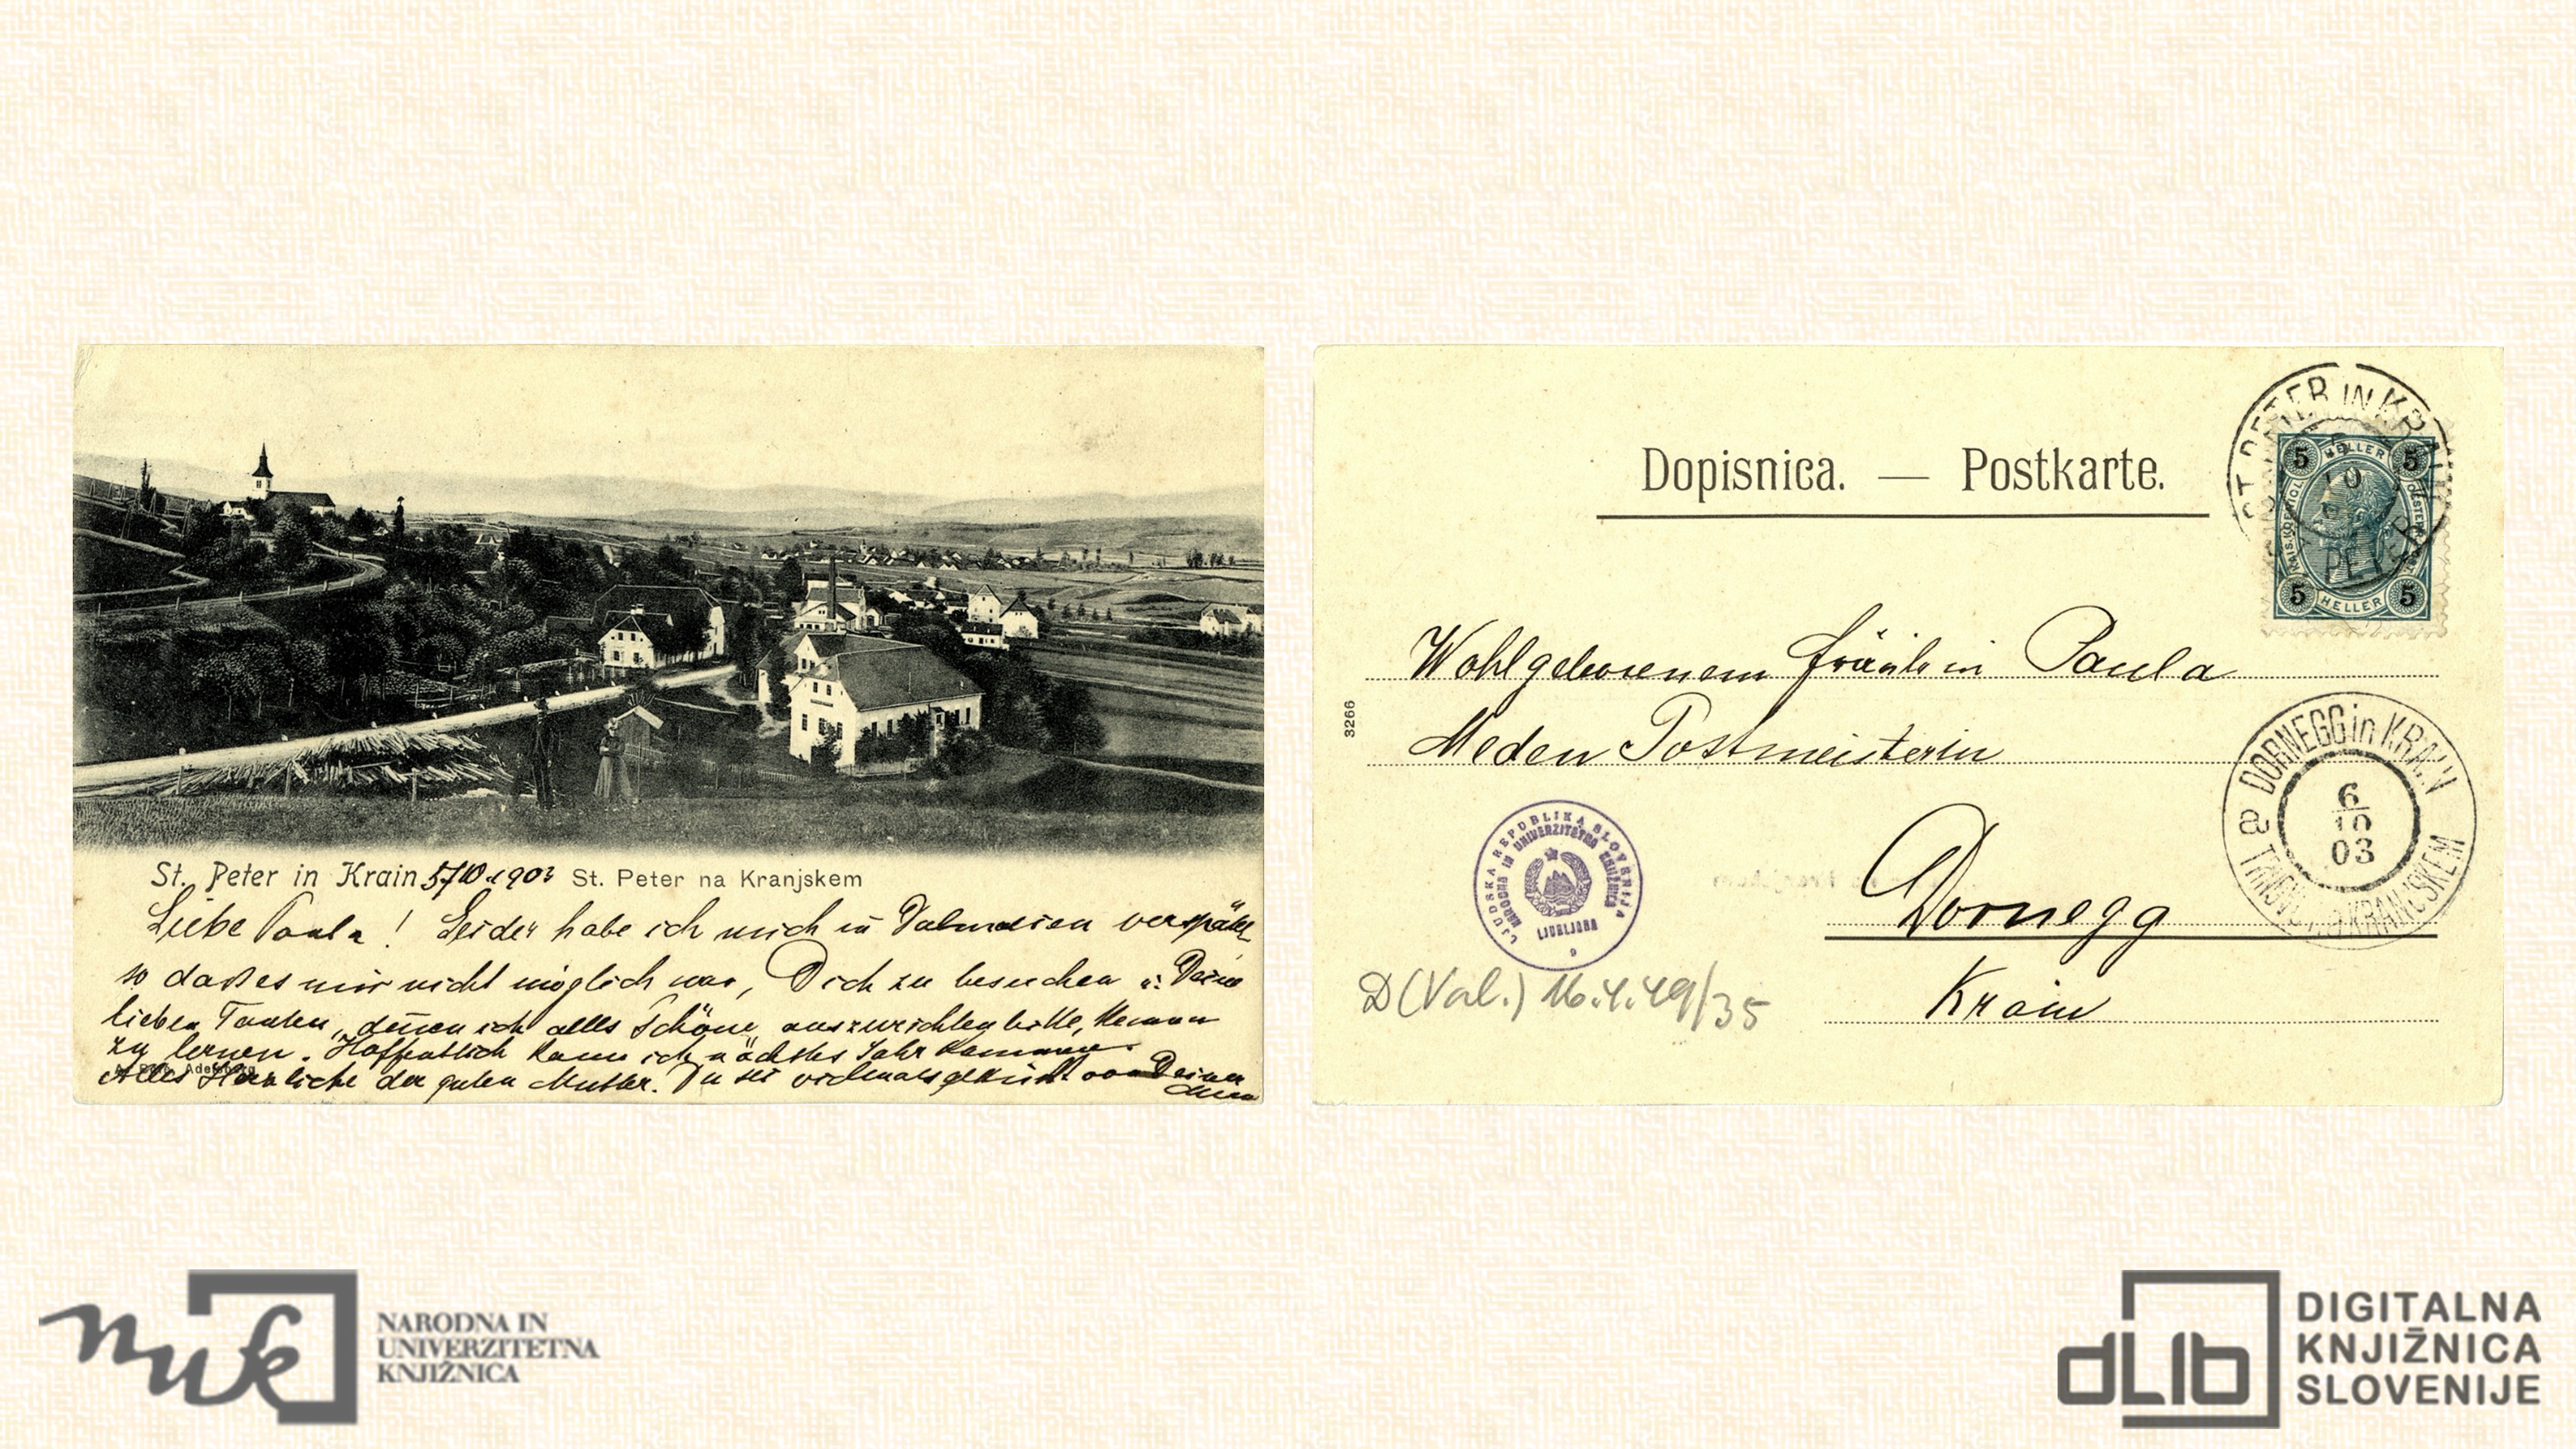 St. Peter in Krain 5/10 1903 St. Peter na Kranjskem
Liebe Paula! Leider habe ich mich in Dalmatien verspätet
so dass es mir nicht möglich war, Dich zu besuchen u. Deine
lieben Tanten, denen ich alles Schöne auszurichten bitte, kennen
zu lernen. Hoffentlich kann ich nächstes Jahr kommen.
Alles Herzliche der guten Mutter. Du sei vielmals geküsst von Deiner
Dopisnica. — Postkarte.
ST. PETER IN KRAIN
5 HELLER 5
5 HELLER 5
Wohlgeborenem Fräulein Paula
Meden Postmeisterin
3266
DORNEGG in KRAIN
6
10
03
LJUDSKA REPUBLIKA SLOVENIJA
NARODNA IN UNIVERZITETNA KNJIŽNICA
LJUBLJANA
9
Dornegg
Krain
D (Val.) 16.4.49/35
nuk
NARODNA IN
UNIVERZITETNA
KNJIŽNICA
dLib
DIGITALNA
KNJIŽNICA
SLOVENIJE